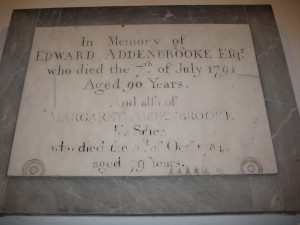 In Memory of
EDWARD ADDENBROOKE Esqr.
who died the 7th of July 1791
Aged 90 Years.
And also of
MARGARET ADDENBROOKE
his Sister
who died the of Octr. 1784
aged 79 Years.